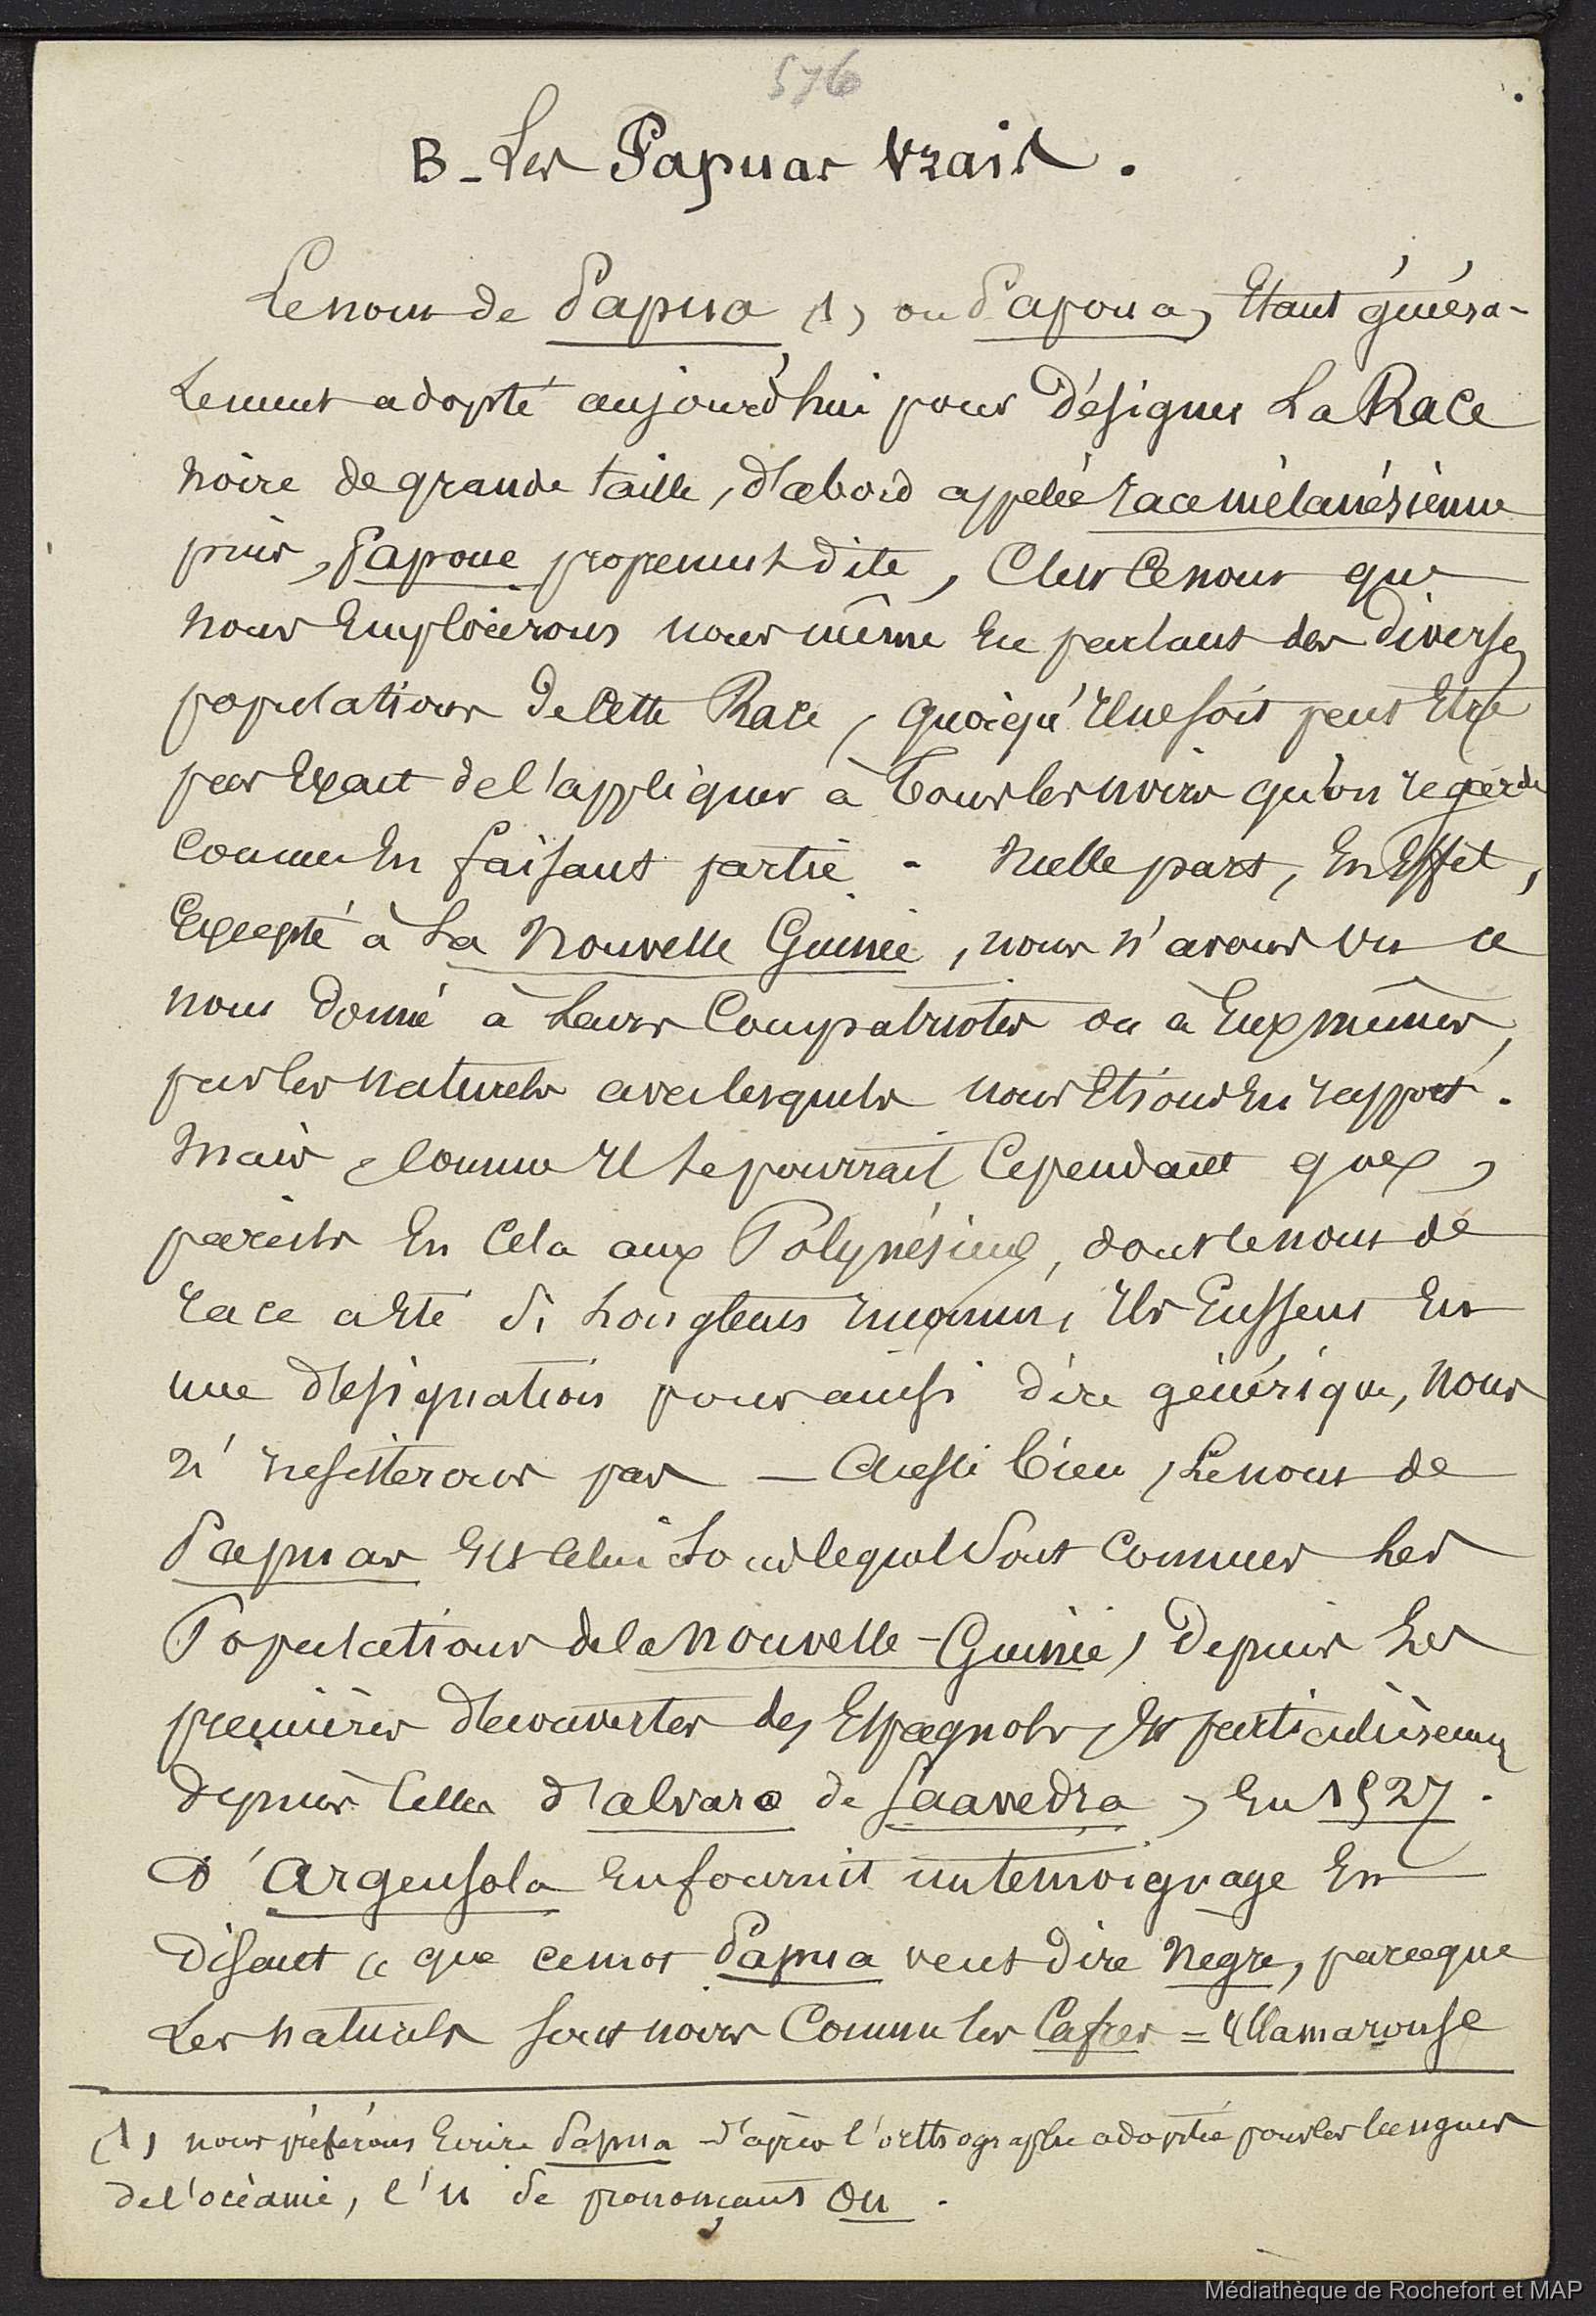 576
B - Les Papuas vrais.
Le nom de Papua (1) ou Papoua, étant généra-
lement adopté aujourd'hui pour désigner la Race
noire de grande taille, d'abord appelée race mélanésienne
puis, Papoue proprement dite, c'est ce nom que
nous emploierons nous même en parlant des diverses
populations de cette Race, quoiqu'il ne soit peut être
pas exact de l'appliquer à tous les noirs qu'on regarde
comme en faisant partie. Nulle part, en effet,
excepté à la Nouvelle Guinée, nous n'avons vu ce
nom donné à leurs compatriotes ou à eux mêmes,
par les naturels avec lesquels nous étions en rapport.
Mais, comme il se pourrait cependant que,
pareils en cela aux Polynésiens, dont le nom de
race a été si longtems inconnu, ils eussent eu
une désignation pour ainsi dire générique, nous
n'insisterons pas — Aussi bien, le nom de
Papuas est celui sous lequel sont connues les
Populations de la Nouvelle-Guinée, depuis les
premières découvertes des Espagnols, et particulièrement
depuis celles d'alvaro de Saavedra, en 1527.
D'Argensola en fournit un témoignage en
disant « que ce mot Papua veut dire Nègre, parceque
les naturels sont noirs comme les Cafres =
(1) nous préférons écrire Papua d'après l'orthographe adoptée pour les langues
de l'océanie, l'u se prononçant ou.
Médiathèque de Rochefort et MAP